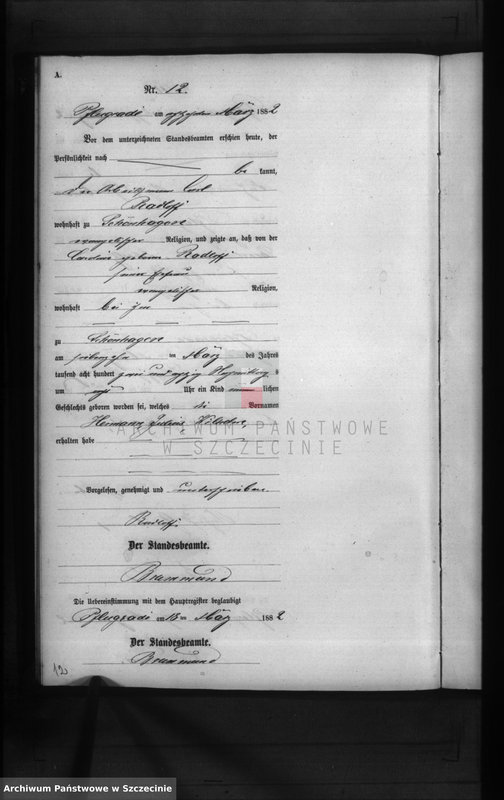 A.
Nr. 12.
Pflugrade am achtzehnten März 1882
Vor dem unterzeichneten Standesbeamten erschien heute, der
Persönlichkeit nach
be kannt,
der Arbeitsmann Carl
Radloff
wohnhaft zu Schönhagen
evangelischer Religion, und zeigte an, daß von der
Caroline geborene Radloff
seiner Ehefrau
evangelischer Religion,
wohnhaft bei ihm
zu Schönhagen
am siebenzehn ten März des Jahres
tausend acht hundert zwei und achtzig Nachmittag s
um Uhr ein Kind männ lichen
Geschlechts geboren worden sei, welches die Vornamen
Hermann Julius
erhalten habe
ARCHIWUM PAŃSTWOWE
W SZCZECINIE
Vorgelesen, genehmigt und unterschrieben
Radloff.
Der Standesbeamte.
Die Uebereinstimmung mit dem Hauptregister beglaubigt
Pflugrade am 18ten März 1882
Der Standesbeamte.
12
Archiwum Państwowe w Szczecinie